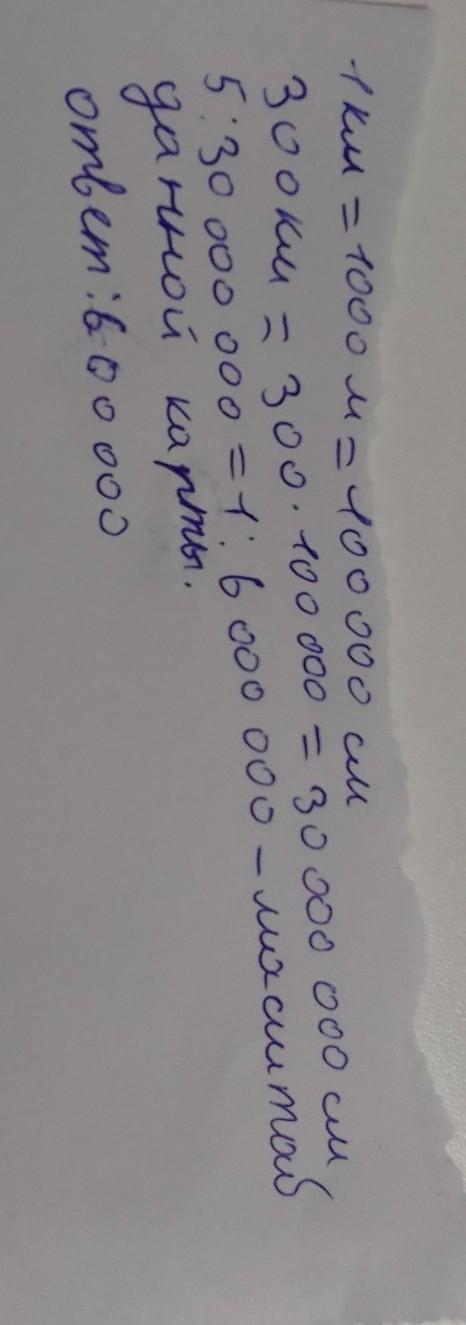 1 км = 1000 м = 100 000 см
300 км = 300 . 100 000 = 30 000 000 см
5 : 30 000 000 = 1 : 6 000 000 - масштаб
данной карты.
ответ : 600 000